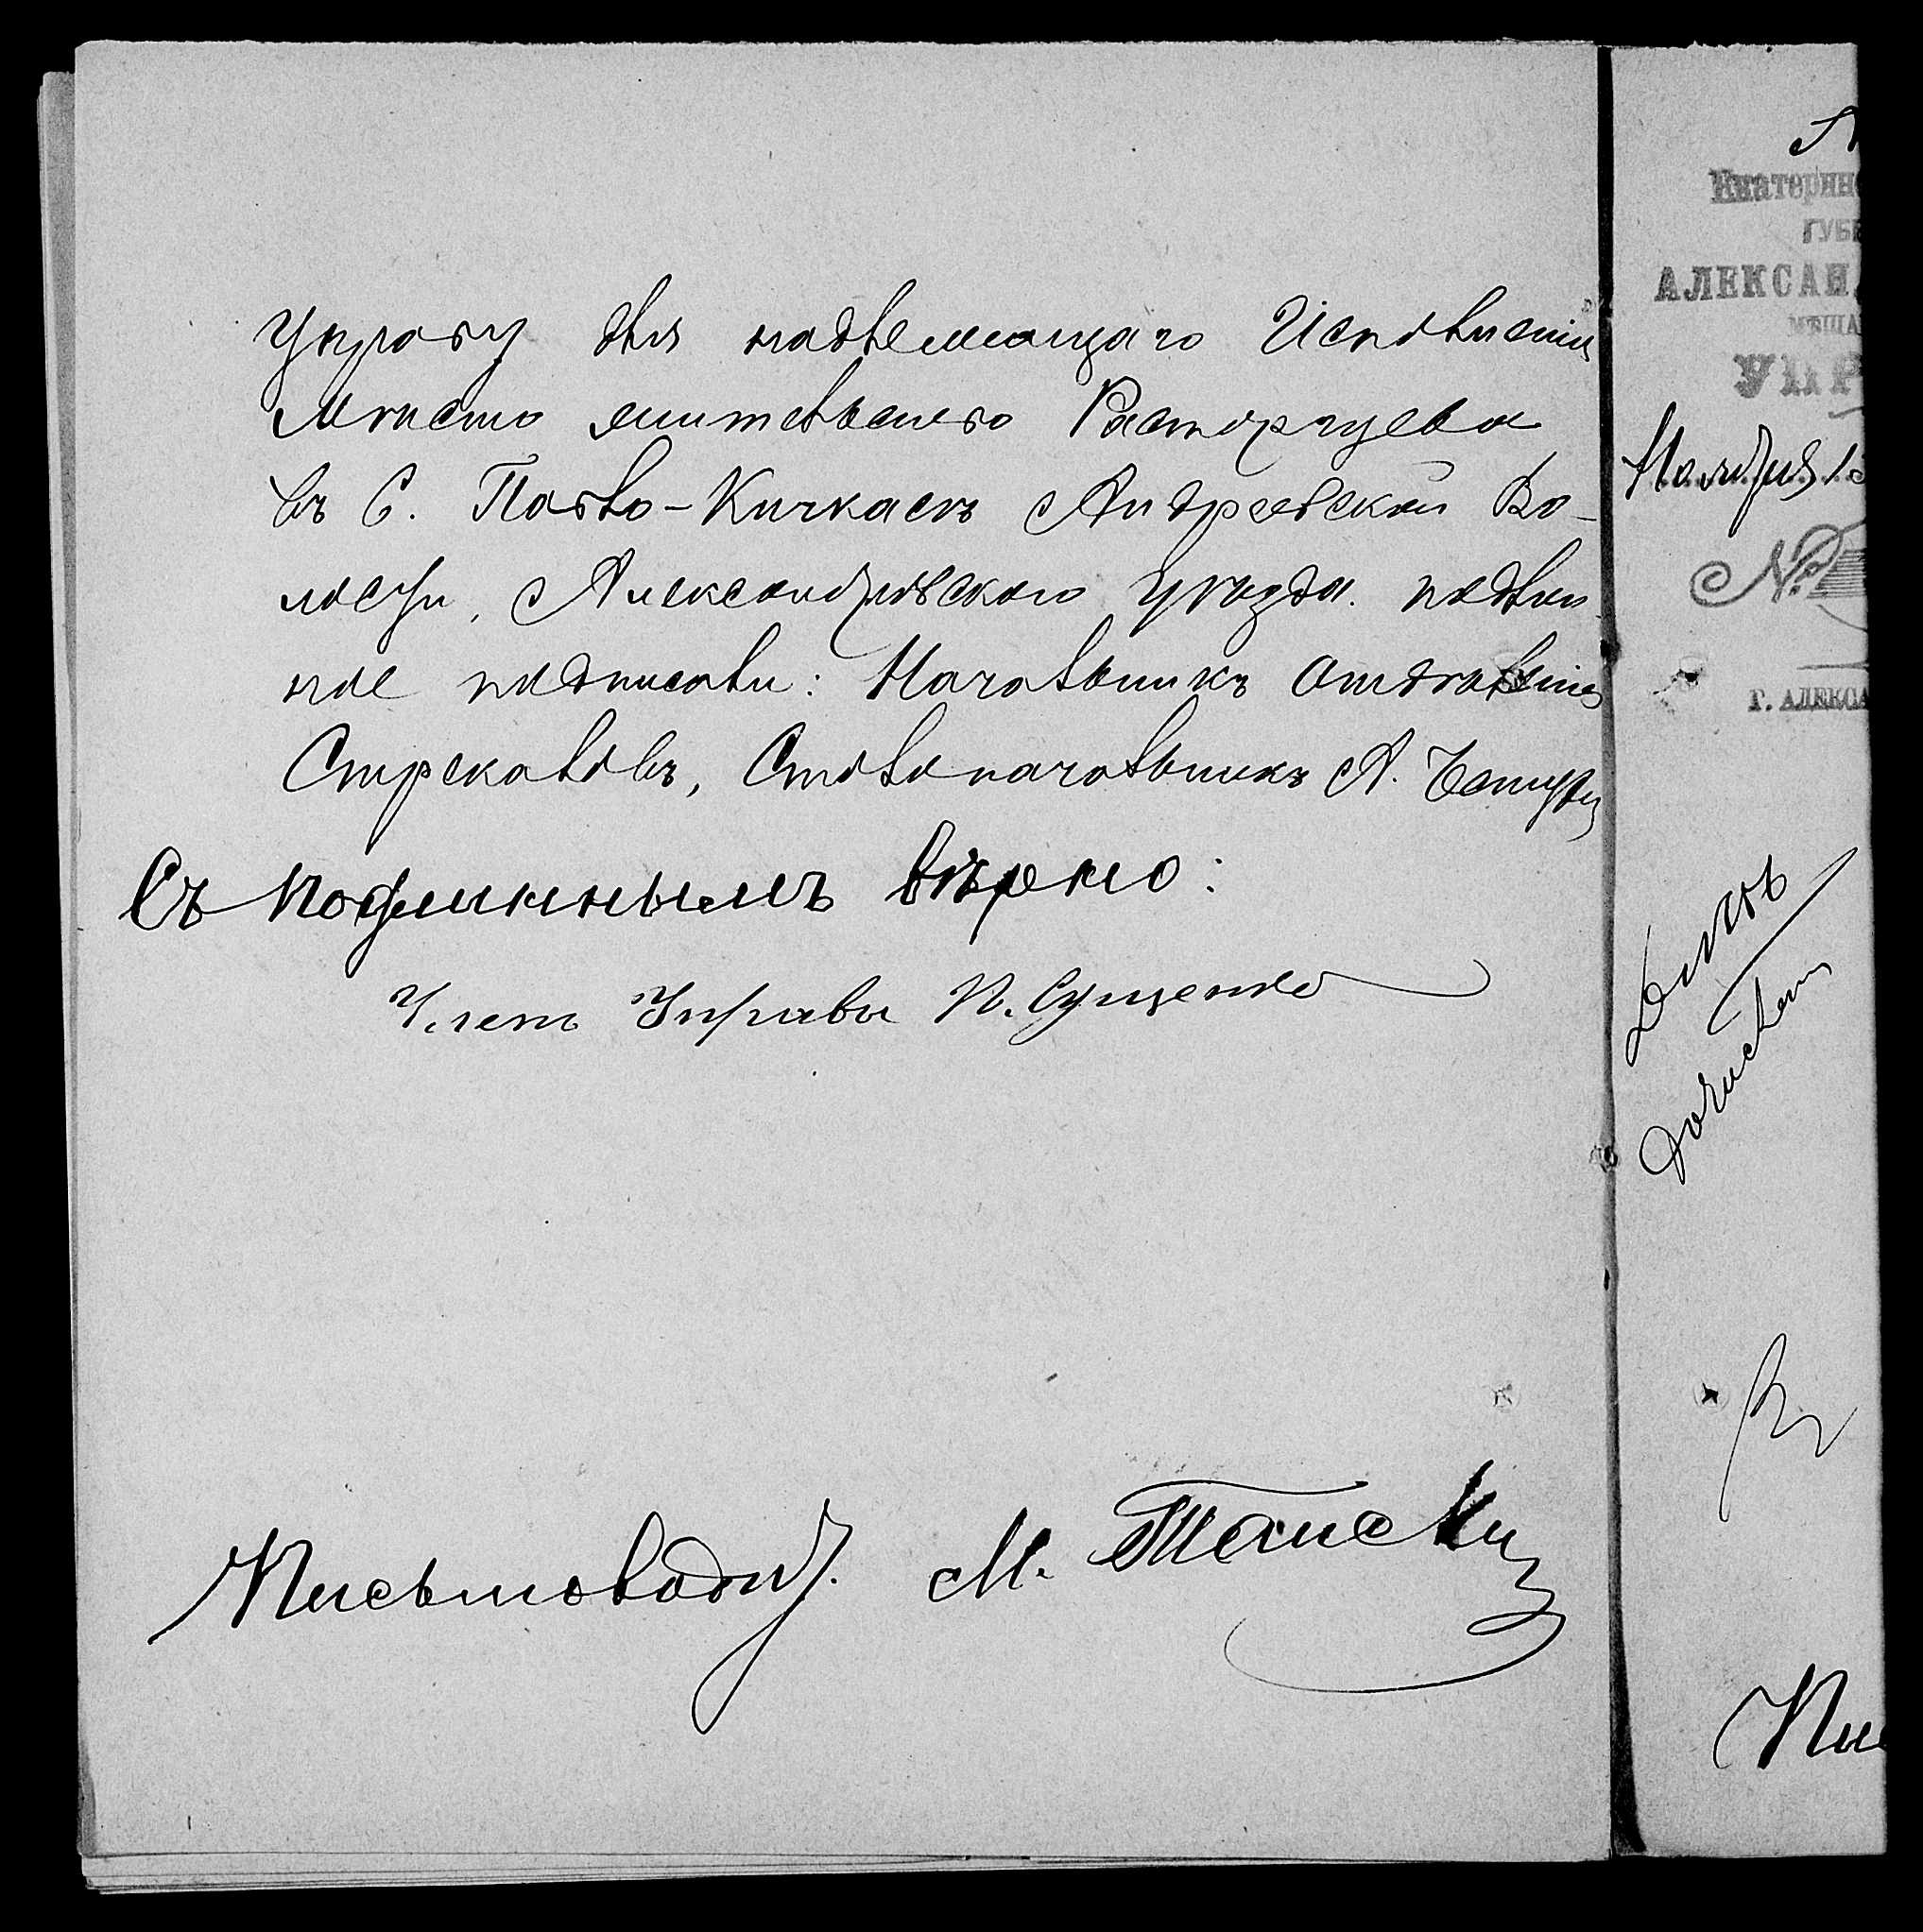 Управу для надлежащаго Исполненія
Мѣсто жительство Расторгуева
въ С. Павло-Кичкасъ Андреевской Во-
лости, Александровскаго Уѣзда. подлин-
ное подписали: Начальникъ Отдѣленія
Стрекаловъ, Столоначальникъ А.
Съ подлиннымъ вѣрно:
Членъ Управы П. Сущенко
Письмоводит. М.
Екатерин
ГУБЕ
АЛЕКСАНД
МѢЩА
УПР
Ноября 13
№
Г. АЛЕКСА
Пис